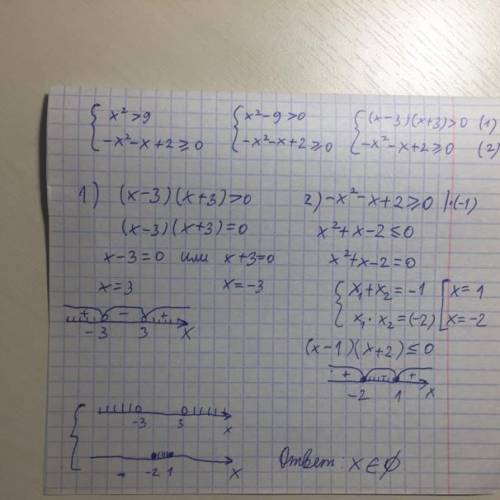 { x² > 9
-x² - x + 2 ⩾ 0
{ x² - 9 > 0
-x² - x + 2 ⩾ 0
{ (x-3)(x+3) > 0 (1)
-x² - x + 2 ⩾ 0 (2)
1) (x-3)(x+3) > 0
(x-3)(x+3) = 0
x-3=0 или x+3=0
x=3 x=-3
+ - +
-3 3 x
2) -x² - x + 2 ⩾ 0 |·(-1)
x² + x - 2 ≤ 0
x² + x - 2 = 0
{ x₁ + x₂ = -1 [ x = 1
x₁ · x₂ = (-2) [ x = -2
(x-1)(x+2) ≤ 0
+ - +
-2 1 x
{ -3 3 x
-2 1 x
Ответ: x ∈ ∅